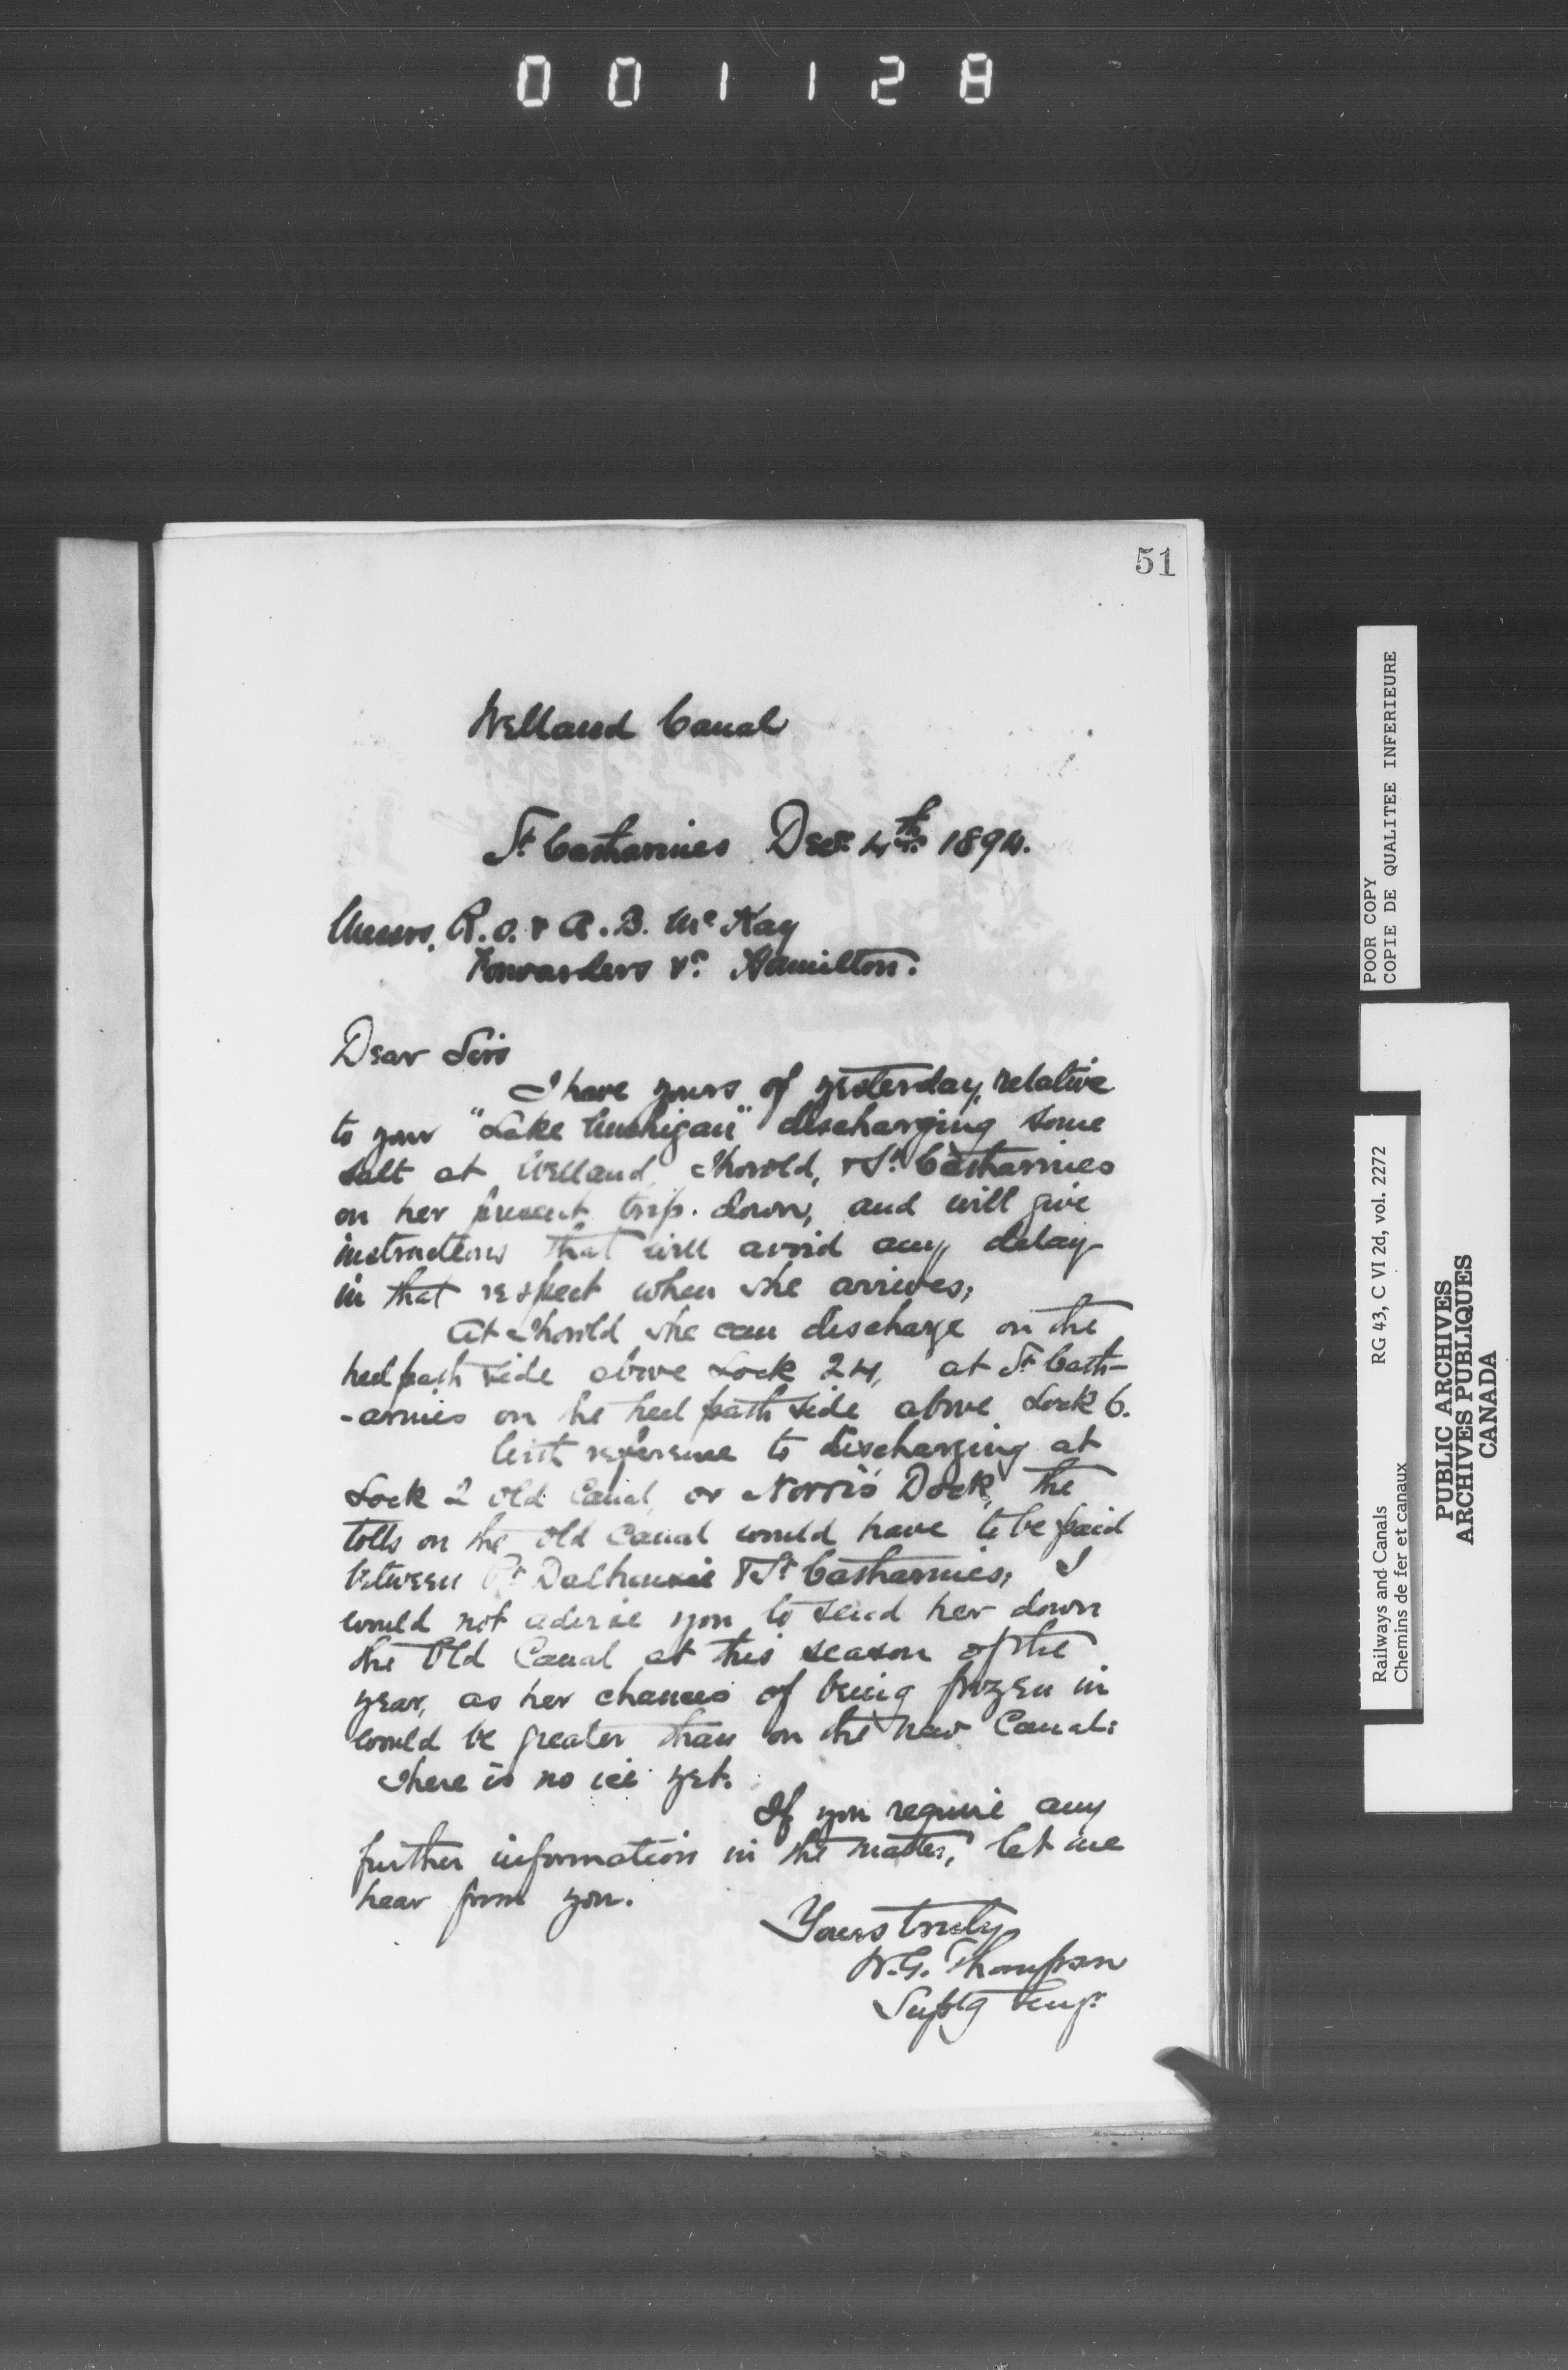 001128
51
Welland Canal
St Catharines Decr 4th 1894.
Messrs. R.O. & A.B. McKay
Forwarders &c Hamilton.
Dear Sirs
I have yours of yesterday, relative
to your "Lake Michigan" discharging some
salt at Welland, Thorold, & St Catharines
on her present trip down, and will give
instructions that will avoid any delay
in that respect when she arrives;
At Thorold she can discharge on the
heelpath side above Lock 24, at St Cath-
-arines on he heel path side above Lock 6.
With reference to discharging at
Lock 2 Old Canal, or Norris' Dock, the
tolls on the Old Canal would have to be paid
between Pt Dalhousie & St Catharines; I
would not advise you to send her down
the Old Canal at this season of the
year, as her chances of being frozen in
would be greater than on the new Canal:
There is no ice yet.
If you require any
further information in the matter, let me
hear from you.
Yours truly
W.G. Thompson
Suptg Engr
POOR COPY
COPIE DE QUALITEE INFERIEURE
Railways and Canals RG 43, C VI 2d, vol. 2272
Chemins de fer et canaux
PUBLIC ARCHIVES
ARCHIVES PUBLIQUES
CANADA